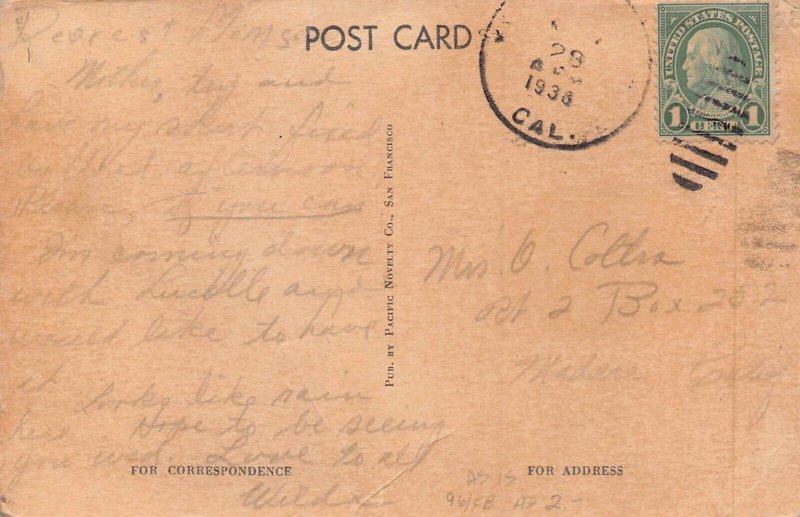 POST CARD
Dearest Mumsie
Mother, try and
have my shoes fixed
if you can
I'm coming down
with Lucille and
would like to have
it
Looks like rain
Hope to be seeing
you wed. Love to all
Wilda
FOR CORRESPONDENCE
PUB. BY PACIFIC NOVELTY CO., SAN FRANCISCO
28
1936
CAL.
UNITED STATES POSTAGE
FRANKLIN
1 CENT 1
Mrs. O. Coltra
Rt 2 Box 252
Madera
FOR ADDRESS
AD 15
96/FB AD 2-